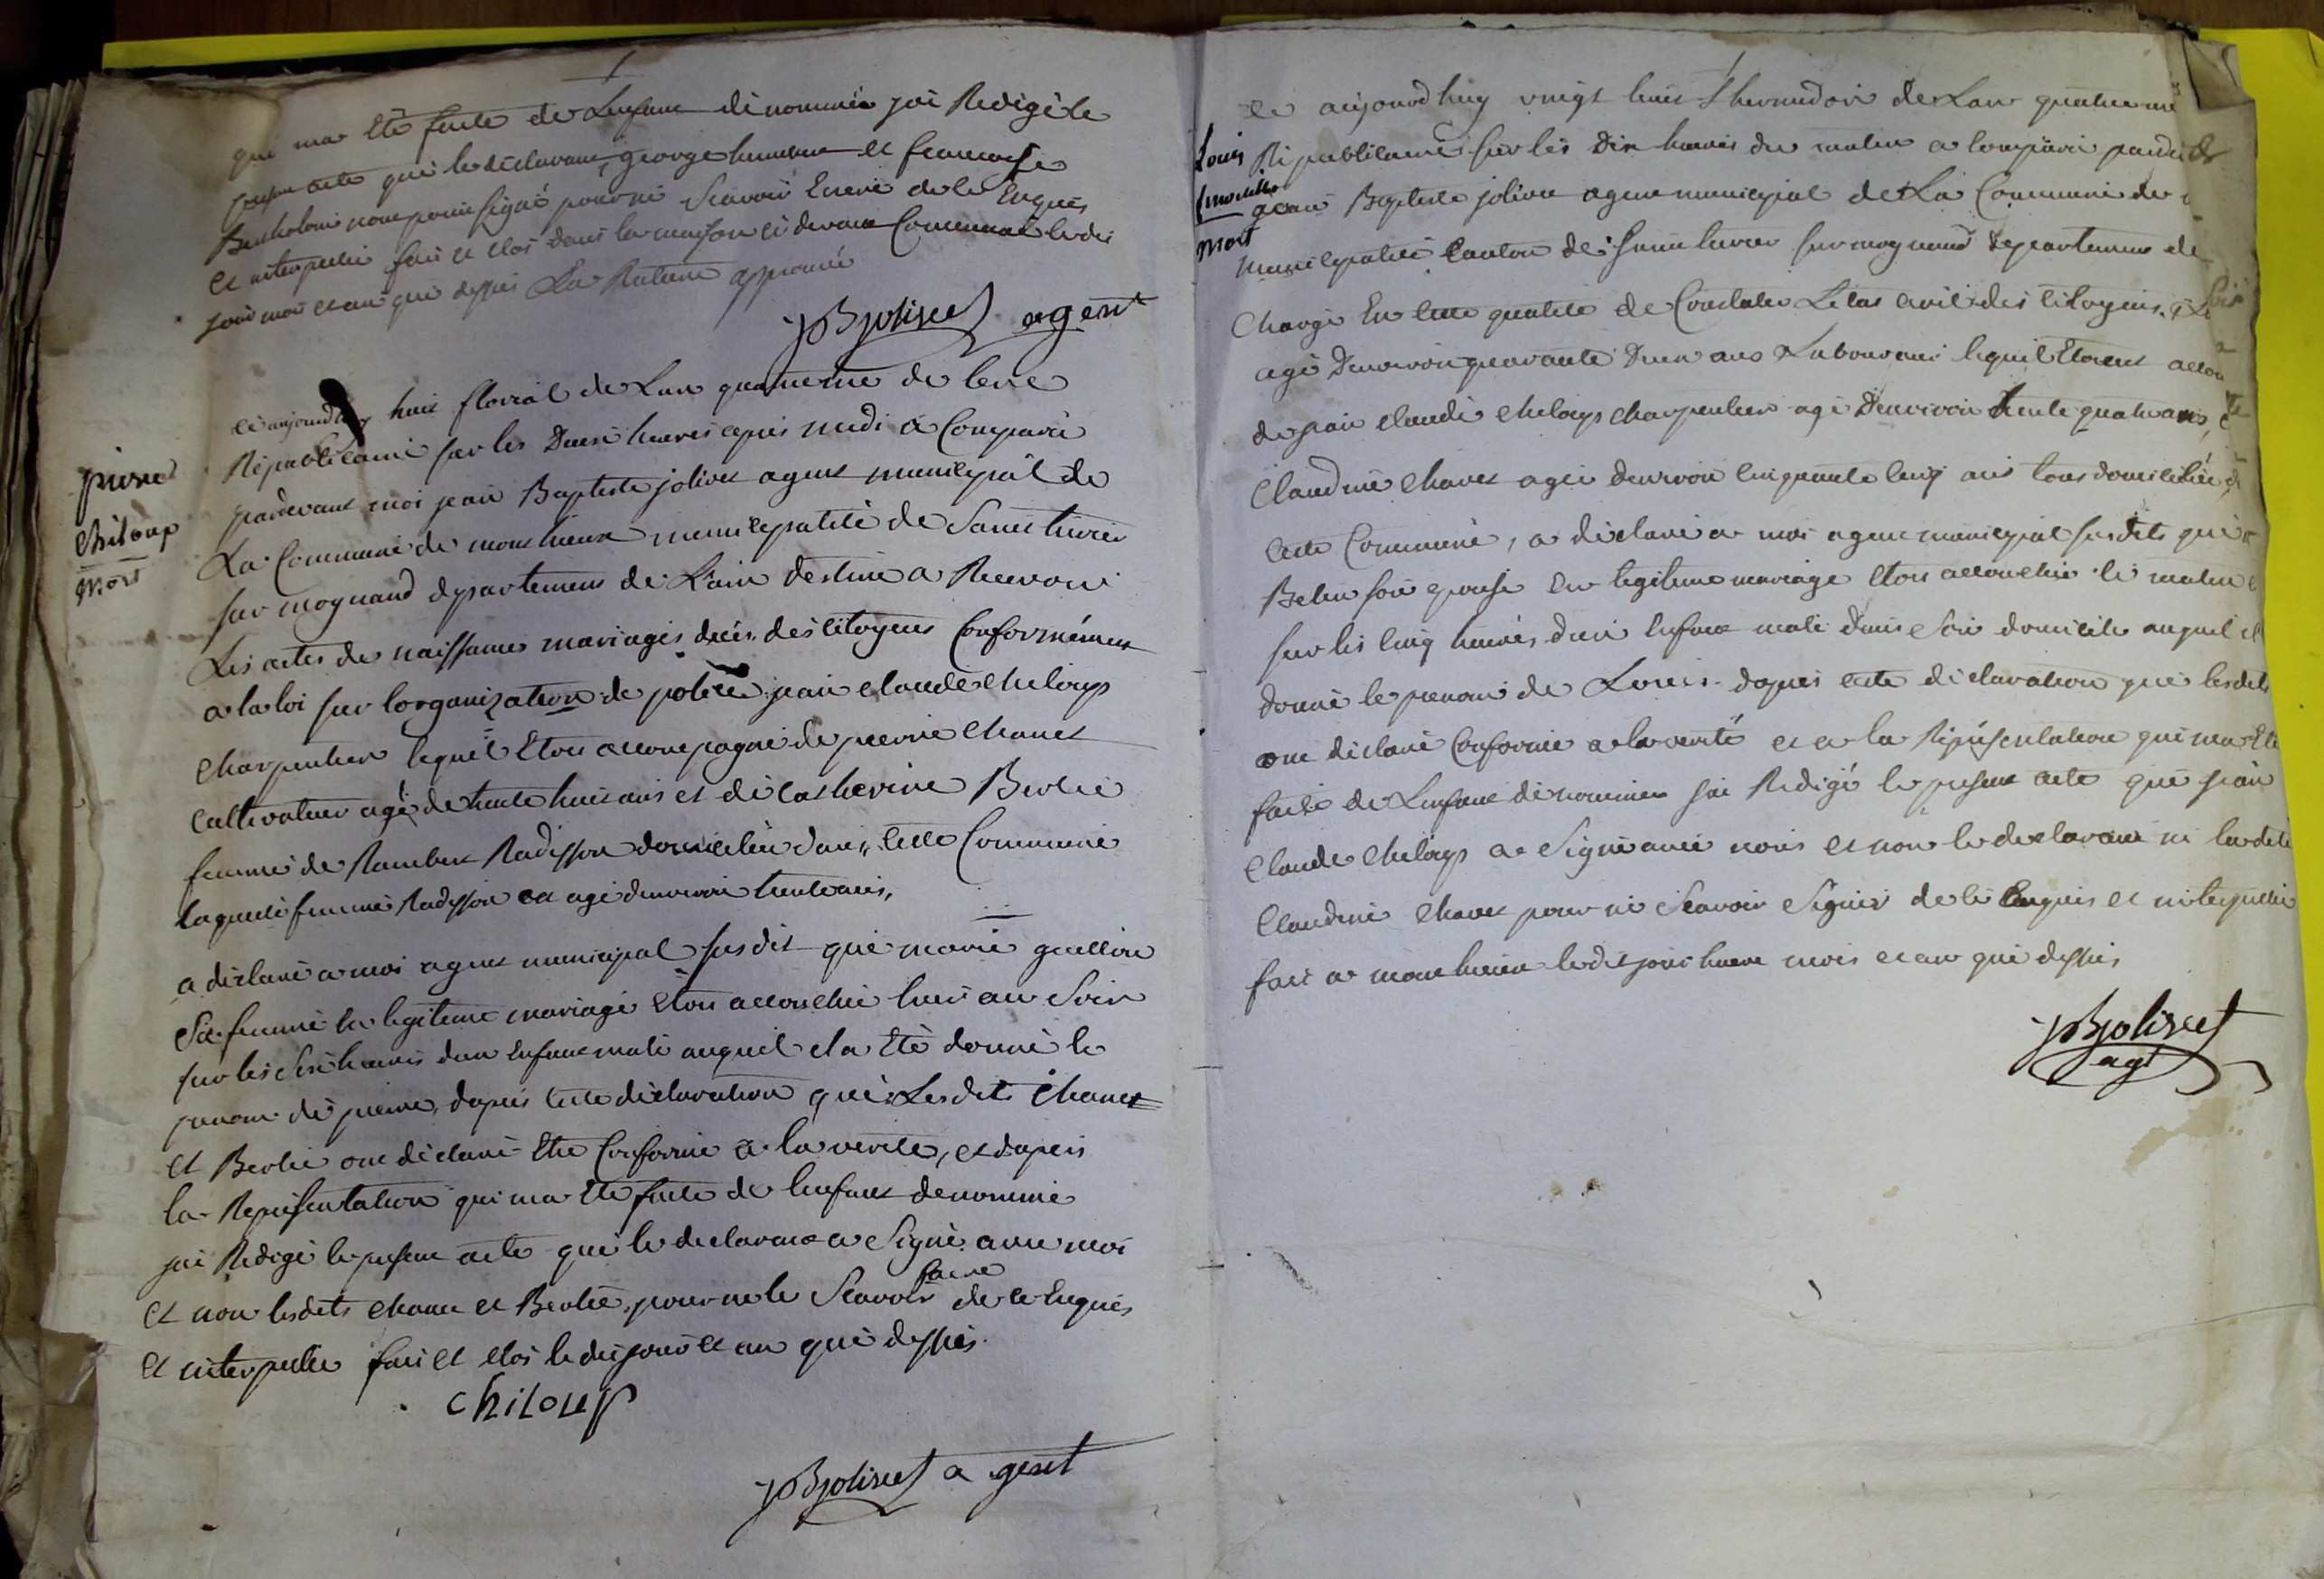 qui ma Eté faite de Lenfant dénommée jai Redigé le
présent acte que le déclarant, george humbert et francoise
Bartholomé nont point signé pour ne Scavoir Ecrire de le Enquis
et interpellé fait et clos dans la maison ci devant Commune ledit
jour mois et an que dessus La Rature approuvée
JBjolivet agent
pierre
Chiloup
mort
ce aujourdhuy huit floréal de Lan quatrieme de lere
Républicaine sur les Deux heures après midi à Comparu
pardevant moi jean Baptiste jolivet agent municipal de
La Commune de monthieux municipalité de Saint Livrier
sur mognand département de L'ain destiné a Recevoir
Les actes de naissances mariages décès des citoyens Conformément
a la loi sur lorganization de police jean claude Cheloup
Charpentier lequel Etoit accompagné de pierre Chanet
Cultivateur agé de trente huit ans et de Catherine Berlié
femme de Rambert Radisson domiciliée dans cette Commune
laquelle femme Radisson est agé denviron trente ans,
a déclaré a moi agent municipal susdit que marie guillion
Sa femme en legitime mariage Etoit accouchée hier au Soir
sur les Six heures dun Enfant male auquel il a Eté donné le
prenom de pierre, dapres cette déclaration que Lesdits Chanet
et Berlié ont déclaré Etre Conforme à la verité, et dapres
la Representation qui ma Eté faite de lenfant denommé
jai Redigé le present acte que le declarant a Signé avec moi
et non lesdits Chanet et Berlié, pour ne le Scavoir faire de ce Enquis
et interpellé fait et clos le dit jour et an que dessus.
Chiloup
JBjolivet agent
Louis
mort
ce aujourdhuy vingt huit thermidor de Lan quatrieme
Républicaine sur les Dix heures du matin a Comparu pardev
jean Baptiste jolivet agent municipal de La Commune de
municipalité Canton de Saint Livrier sur mognand département de
Chargé En cette qualité de Constater Letat civil des citoyens,
agé Denviron quarante Deux ans Laboureur lequel Etoient accom
de jean claude Cheloup charpentier agé Denviron trente quatre ans,
Claudine Chanet agée denviron cinquante cinq ans tous domiciliés
cette Commune, a déclaré a moi agent municipal susdits que
Belin son epouse en legitime mariage Etoit accouchée ce matin
sur les cinq heures d'un Enfant male dans Son domicile auquel il
donné le prenom de Louis. dapres cette déclaration que lesdits
ont déclaré Conforme a la verité et a la Répésentation qui ma Eté
faite de Lenfant dénommée jai Redigé le present acte que jean
Claude Cheloup a Signé avec nous et non le declarant ni ladite
Claudine Chanet pour ne Scavoir Signer de le Enquis et interpellé
fait a monthieux ledit jour heure mois et an que dessus
JBjolivet
agt